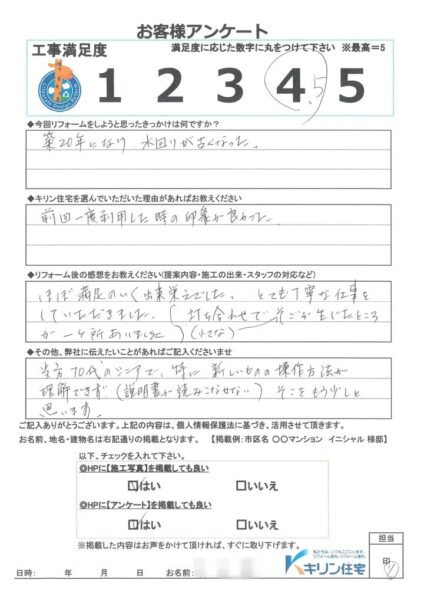 お客様アンケート
工事満足度
満足度に応じた数字に丸をつけて下さい ※最高=5
1 2 3 4 .5 5
◆今回リフォームをしようと思ったきっかけは何ですか?
築20年になり、水回りが古くなった。
◆キリン住宅を選んでいただいた理由があればお教えください
前回一度利用した時の印象が良かった。
◆リフォーム後の感想をお教えください(提案内容・施工の出来・スタッフの対応など)
ほぼ満足のいく出来栄えでした。とても丁寧な仕事を
していただきました。(打ち合わせで そごが生じたところ
が一ヶ所ありました)(小さな)
◆その他、弊社に伝えたいことがあればご記入くださいませ
当方70代のシニアで、特に新しいものの操作方法が
理解できず(説明書が読みこなせない)そこをもう少しと
思います。
ご記入ありがとうございます。上記の内容は、個人情報保護法に基づき、活用させて頂きます。
お名前、地名・建物名は右記通りの掲載となります。【掲載例:市区名 〇〇マンション イニシャル 様邸】
以下、チェックを入れて下さい。
◎HPに【施工写真】を掲載しても良い
はい いいえ
◎HPに【アンケート】を掲載しても良い
はい いいえ
※掲載した内容はお声をかけて頂ければ、すぐに取り下げます。
担当
印
私たちは、いつもここにいます。
キリン住宅
日時: 年 月 日 お名前: